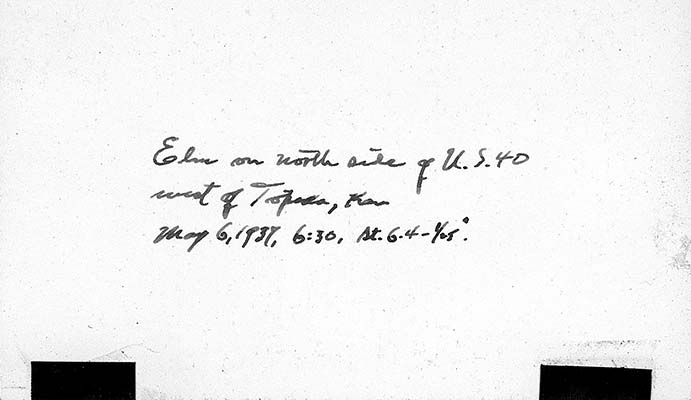 Elm on north side of U.S. 40
west of Topeka, Kan
May 6, 1937, 6:30, St. 6.4 - 1/25".